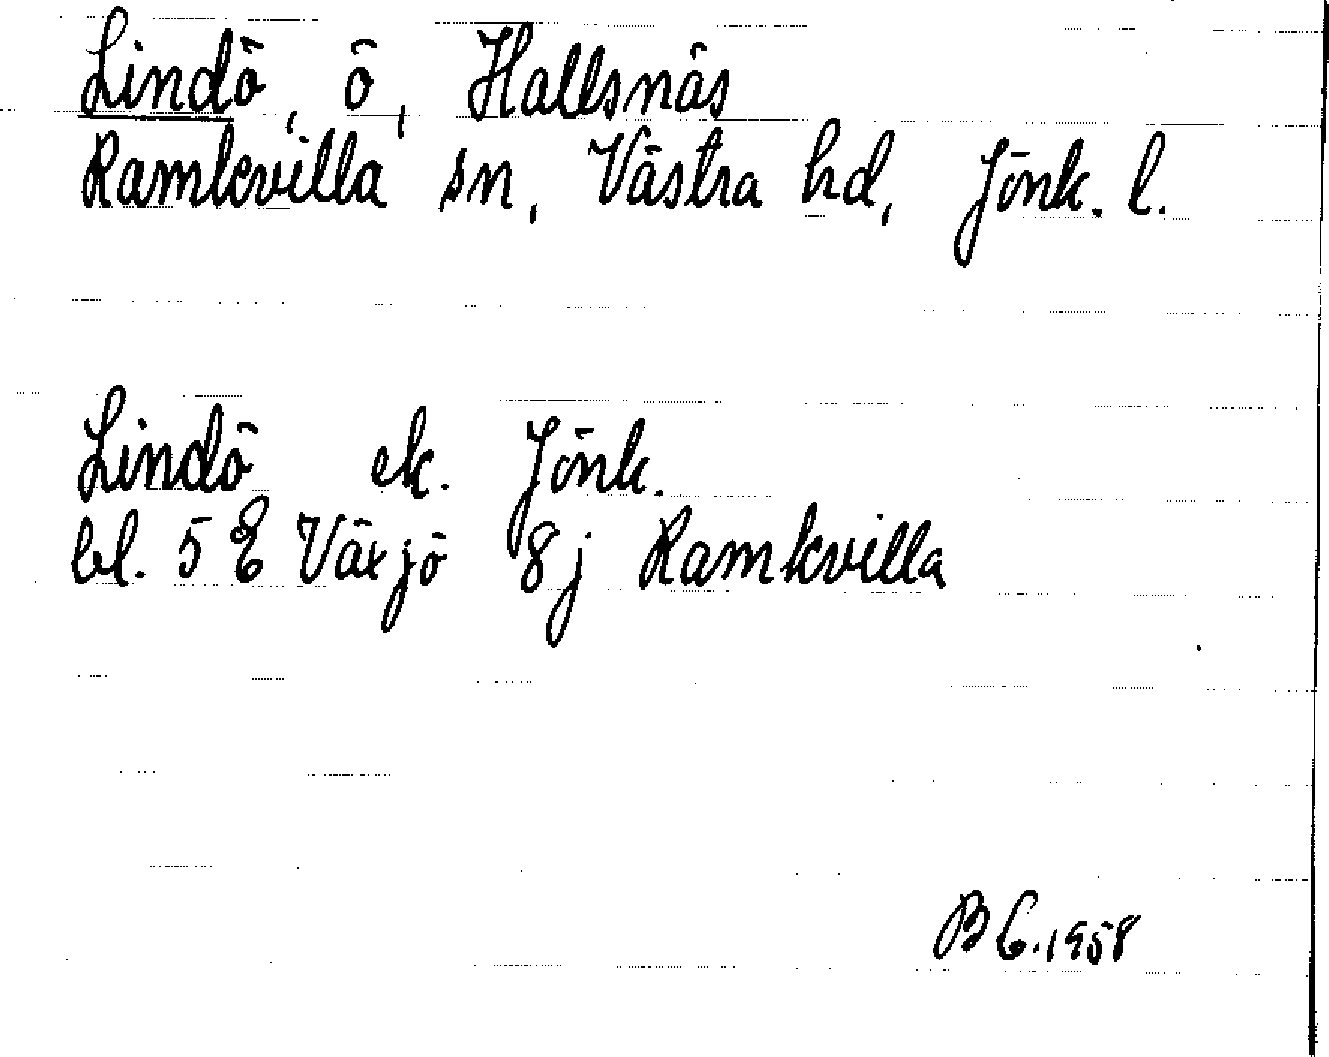 Lindö, ö, Hallsnäs
Ramkvilla sn, Västra hd, Jönk. l.
Lindö ek. Jönk.
bl. 5 E Växjö 8j Ramkvilla
B C. 1958